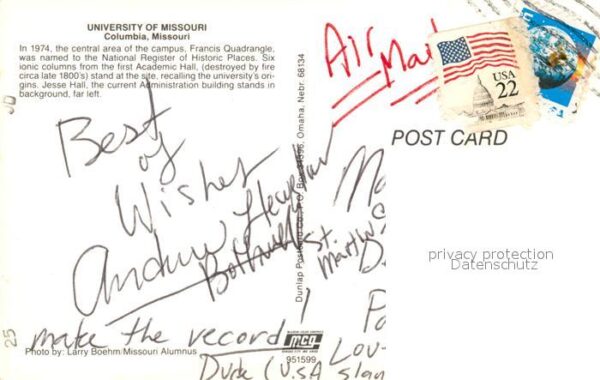 UNIVERSITY OF MISSOURI
Columbia, Missouri
In 1974, the central area of the campus, Francis Quadrangle,
was named to the National Register of Historic Places. Six
ionic columns from the first Academic Hall, (destroyed by fire
circa late 1800's) stand at the site, recalling the university's ori-
gins. Jesse Hall, the current Administration building stands in
background, far left.
JD
Best
of
Wishes
Andrew
make the record!
25
Photo by: Larry Boehm/Missouri Alumnus
951599
Dunlap Postcard Co., P.O. Box Omaha, Nebr. 68134
Air
Mail
USA
22
POST CARD
St.
privacy protection
Datenschutz
Lou-
(USA